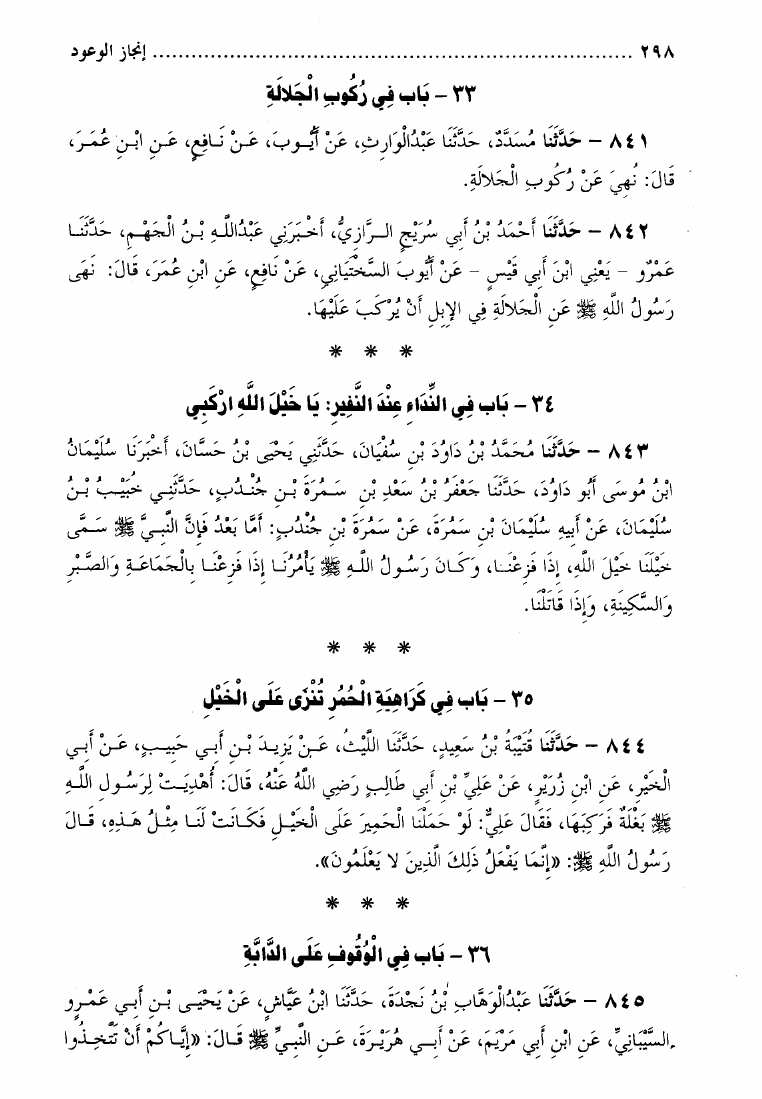 ٢٩٨ ........................................................................ إنجاز الوعود
٣٣ – بَاب فِي رُكُوبِ الْجَلالَةِ
٨٤١ – حَدَّثَنَا مُسَدَّدٌ، حَدَّثَنَا عَبْدُالْوَارِثِ، عَنْ أَيُّوبَ، عَنْ نَافِعٍ، عَنِ ابْنِ عُمَرَ،
قَالَ: نُهِيَ عَنْ رُكُوبِ الْجَلالَةِ.
٨٤٢ – حَدَّثَنَا أَحْمَدُ بْنُ أَبِي سُرَيْجٍ الرَّازِيُّ، أَخْبَرَنِي عَبْدُاللَّهِ بْنُ الْجَهْمِ، حَدَّثَنَا
عَمْرٌو – يَعْنِي ابْنَ أَبِي قَيْسٍ – عَنْ أَيُّوبَ السَّخْتَيَانِي، عَنْ نَافِعٍ، عَنِ ابْنِ عُمَرَ، قَالَ: نَهَى
رَسُولُ اللَّهِ ﷺ عَنِ الْجَلالَةِ فِي الإِبِلِ أَنْ يُرْكَبَ عَلَيْهَا.
* * *
٣٤ – بَاب فِي النِّدَاءِ عِنْدَ النَّفِيرِ: يَا خَيْلَ اللَّهِ ارْكَبِي
٨٤٣ – حَدَّثَنَا مُحَمَّدُ بْنُ دَاوُدَ بْنِ سُفْيَانَ، حَدَّثَنِي يَحْيَى بْنُ حَسَّانَ، أَخْبَرَنَا سُلَيْمَانُ
ابْنُ مُوسَى أَبُو دَاوُدَ، حَدَّثَنَا جَعْفَرُ بْنُ سَعْدِ بْنِ سَمُرَةَ بْنِ جُنْدُبٍ، حَدَّثَنِي خُبَيْبُ بْنُ
سُلَيْمَانَ، عَنْ أَبِيهِ سُلَيْمَانَ بْنِ سَمُرَةَ، عَنْ سَمُرَةَ بْنِ جُنْدُبٍ: أَمَّا بَعْدُ فَإِنَّ النَّبِيَّ ﷺ سَمَّى
خَيْلَنَا خَيْلَ اللَّهِ، إِذَا فَزِعْنَا، وَكَانَ رَسُولُ اللَّهِ ﷺ يَأْمُرُنَا إِذَا فَزِعْنَا بِالْجَمَاعَةِ وَالصَّبْرِ
وَالسَّكِينَةِ، وَإِذَا قَاتَلْنَا.
* * *
٣٥ – بَاب فِي كَرَاهِيَةِ الْحُمُرِ تُنْزَى عَلَى الْخَيْلِ
٨٤٤ – حَدَّثَنَا قُتَيْبَةُ بْنُ سَعِيدٍ، حَدَّثَنَا اللَّيْثُ، عَنْ يَزِيدَ بْنِ أَبِي حَبِيبٍ، عَنْ أَبِي
الْخَيْرِ، عَنِ ابْنِ زُرَيْرٍ، عَنْ عَلِيِّ بْنِ أَبِي طَالِبٍ رَضِي اللَّهُ عَنْهُ، قَالَ: أُهْدِيَتْ لِرَسُولِ اللَّهِ
ﷺ بَغْلَةٌ فَرَكِبَهَا، فَقَالَ عَلِيٌّ: لَوْ حَمَلْنَا الْحَمِيرَ عَلَى الْخَيْلِ فَكَانَتْ لَنَا مِثْلُ هَذِهِ، قَالَ
رَسُولُ اللَّهِ ﷺ: «إِنَّمَا يَفْعَلُ ذَلِكَ الَّذِينَ لا يَعْلَمُونَ».
* * *
٣٦ – بَاب فِي الْوُقُوفِ عَلَى الدَّابَّةِ
٨٤٥ – حَدَّثَنَا عَبْدُالْوَهَّابِ بْنُ نَجْدَةَ، حَدَّثَنَا ابْنُ عَيَّاشٍ، عَنْ يَحْيَى بْنِ أَبِي عَمْرٍو
السَّيْبَانِيِّ، عَنِ ابْنِ أَبِي مَرْيَمَ، عَنْ أَبِي هُرَيْرَةَ، عَنِ النَّبِيِّ ﷺ قَالَ: «إِيَّاكُمْ أَنْ تَتَّخِذُوا